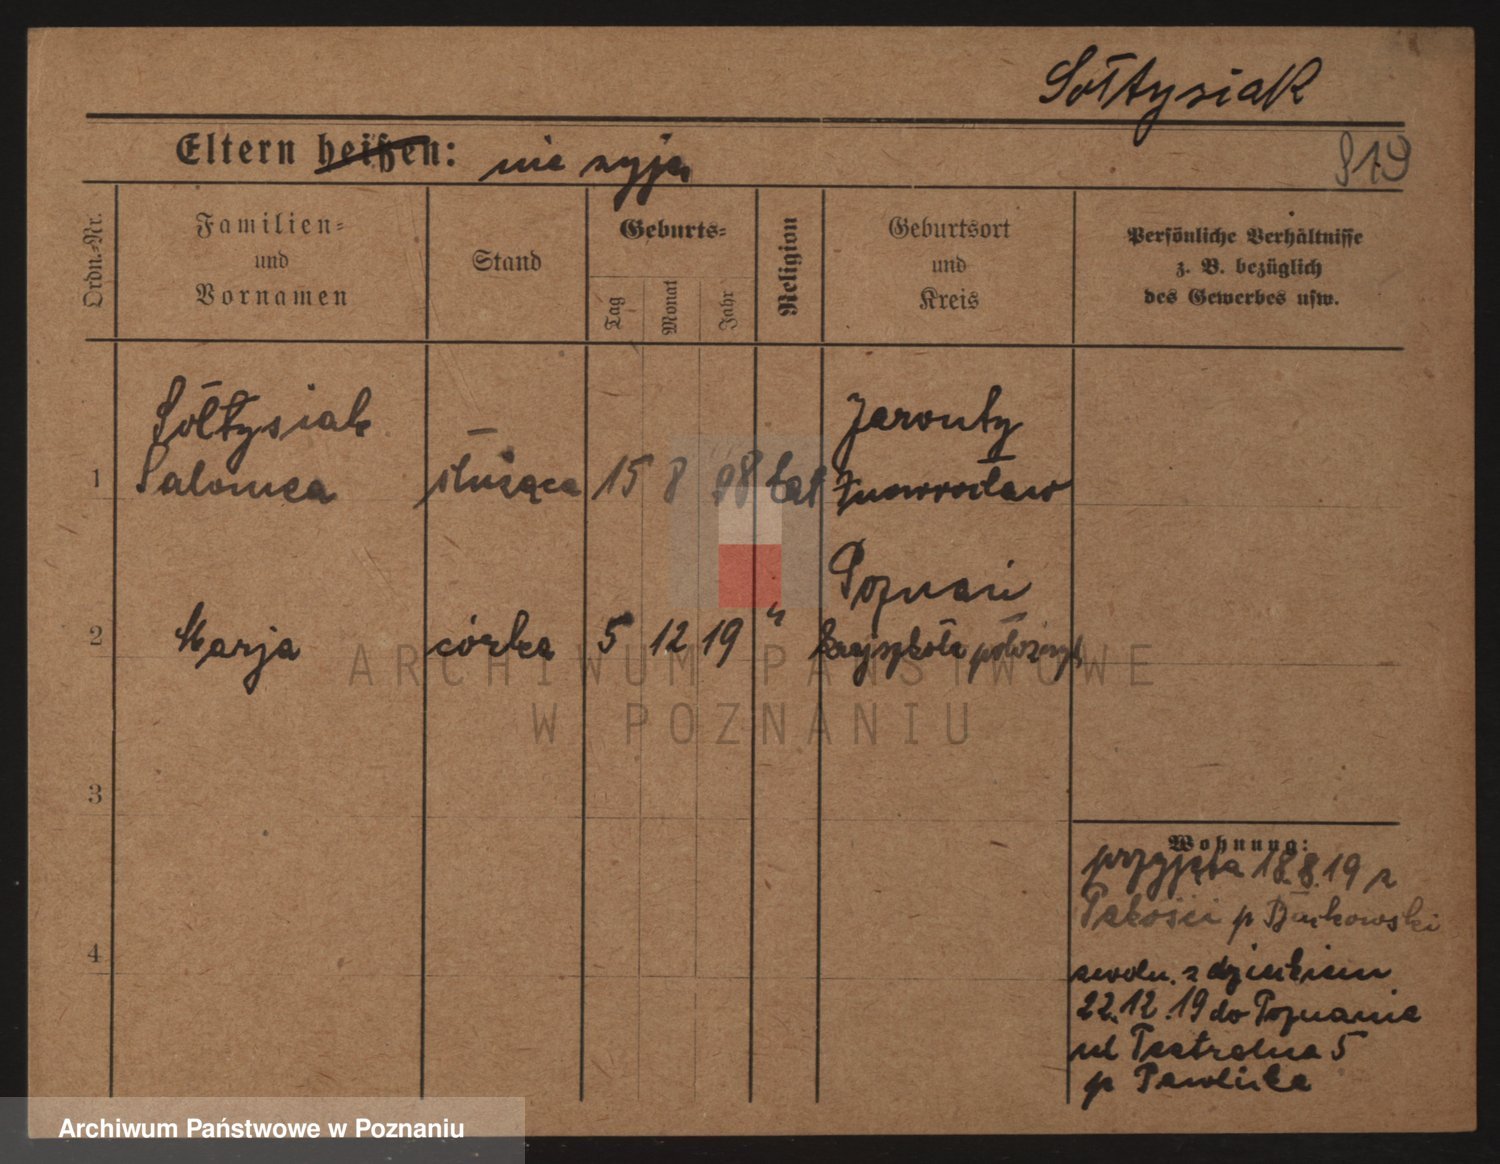 Sołtysiak
Eltern heißen: nie żyją
819
Ordn.-Nr.
Familien-
und
Vornamen
Stand
Geburts-
Tag
Monat
Jahr
Religion
Geburtsort
und
Kreis
Persönliche Verhältnisse
z. B. bezüglich
des Gewerbes usw.
Sołtysiak Jaronty
1 Salomea służąca 15 8 98 kat Inowrocław
Poznań
2 Marja córka 5 12 19 " kraj szkoła położnych
3
4
Wohnung:
przyjęta 18.8.19 z
Pakości p
zwoln. z dzieckiem
22.12.19 do Poznania
ul Teatralna 5
p Pawlicka
ARCHIWUM PAŃSTWOWE
W POZNANIU
Archiwum Państwowe w Poznaniu